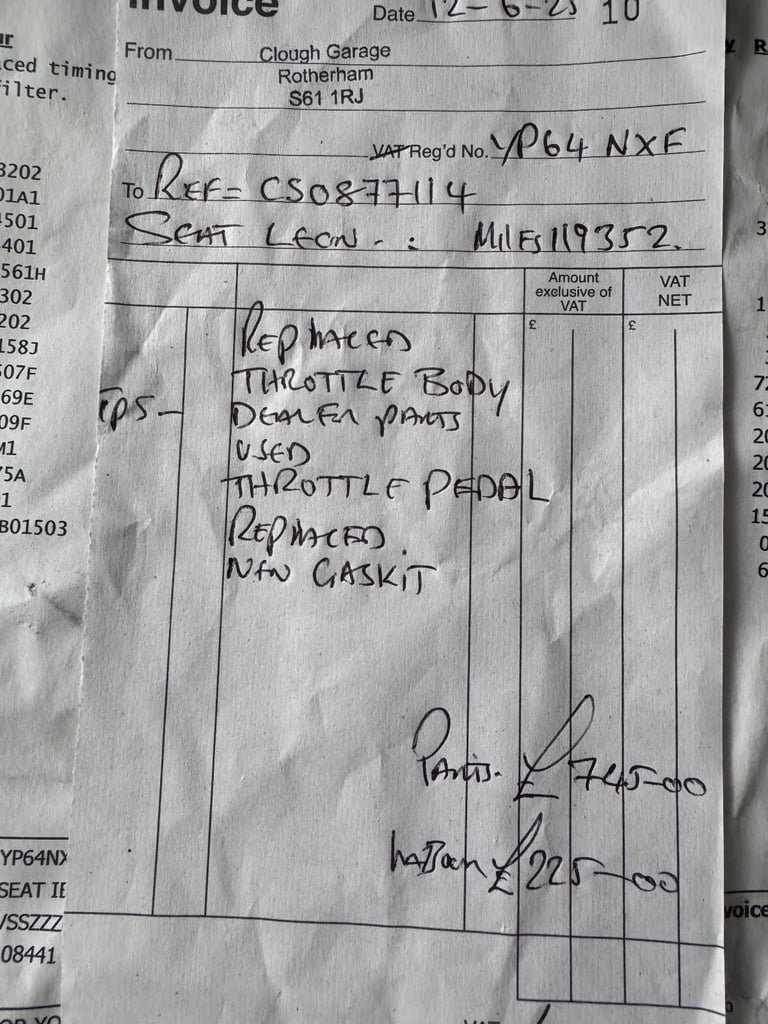 Invoice
Date 12-6-25 10
From Clough Garage
Rotherham
S61 1RJ
VAT Reg'd No. YP64 NXF
To REF= CS0877114
SEAT LEON - : MILES 119352.
Amount exclusive of VAT
VAT NET
£ £
REPLACED
THROTTLE BODY
TPS- DEALER PARTS
USED
THROTTLE PEDAL
REPLACED.
NEW GASKIT
PARTS. £ 745-00
LABOUR £ 225-00
ced timing
ilter.
3202
01A1
4501
401
561H
302
202
158J
507F
69E
09F
M1
75A
1
B01503
YP64NX
SEAT IB
VSSZZZ
08441
R
3
1
20
20
20
15
0
6
voice